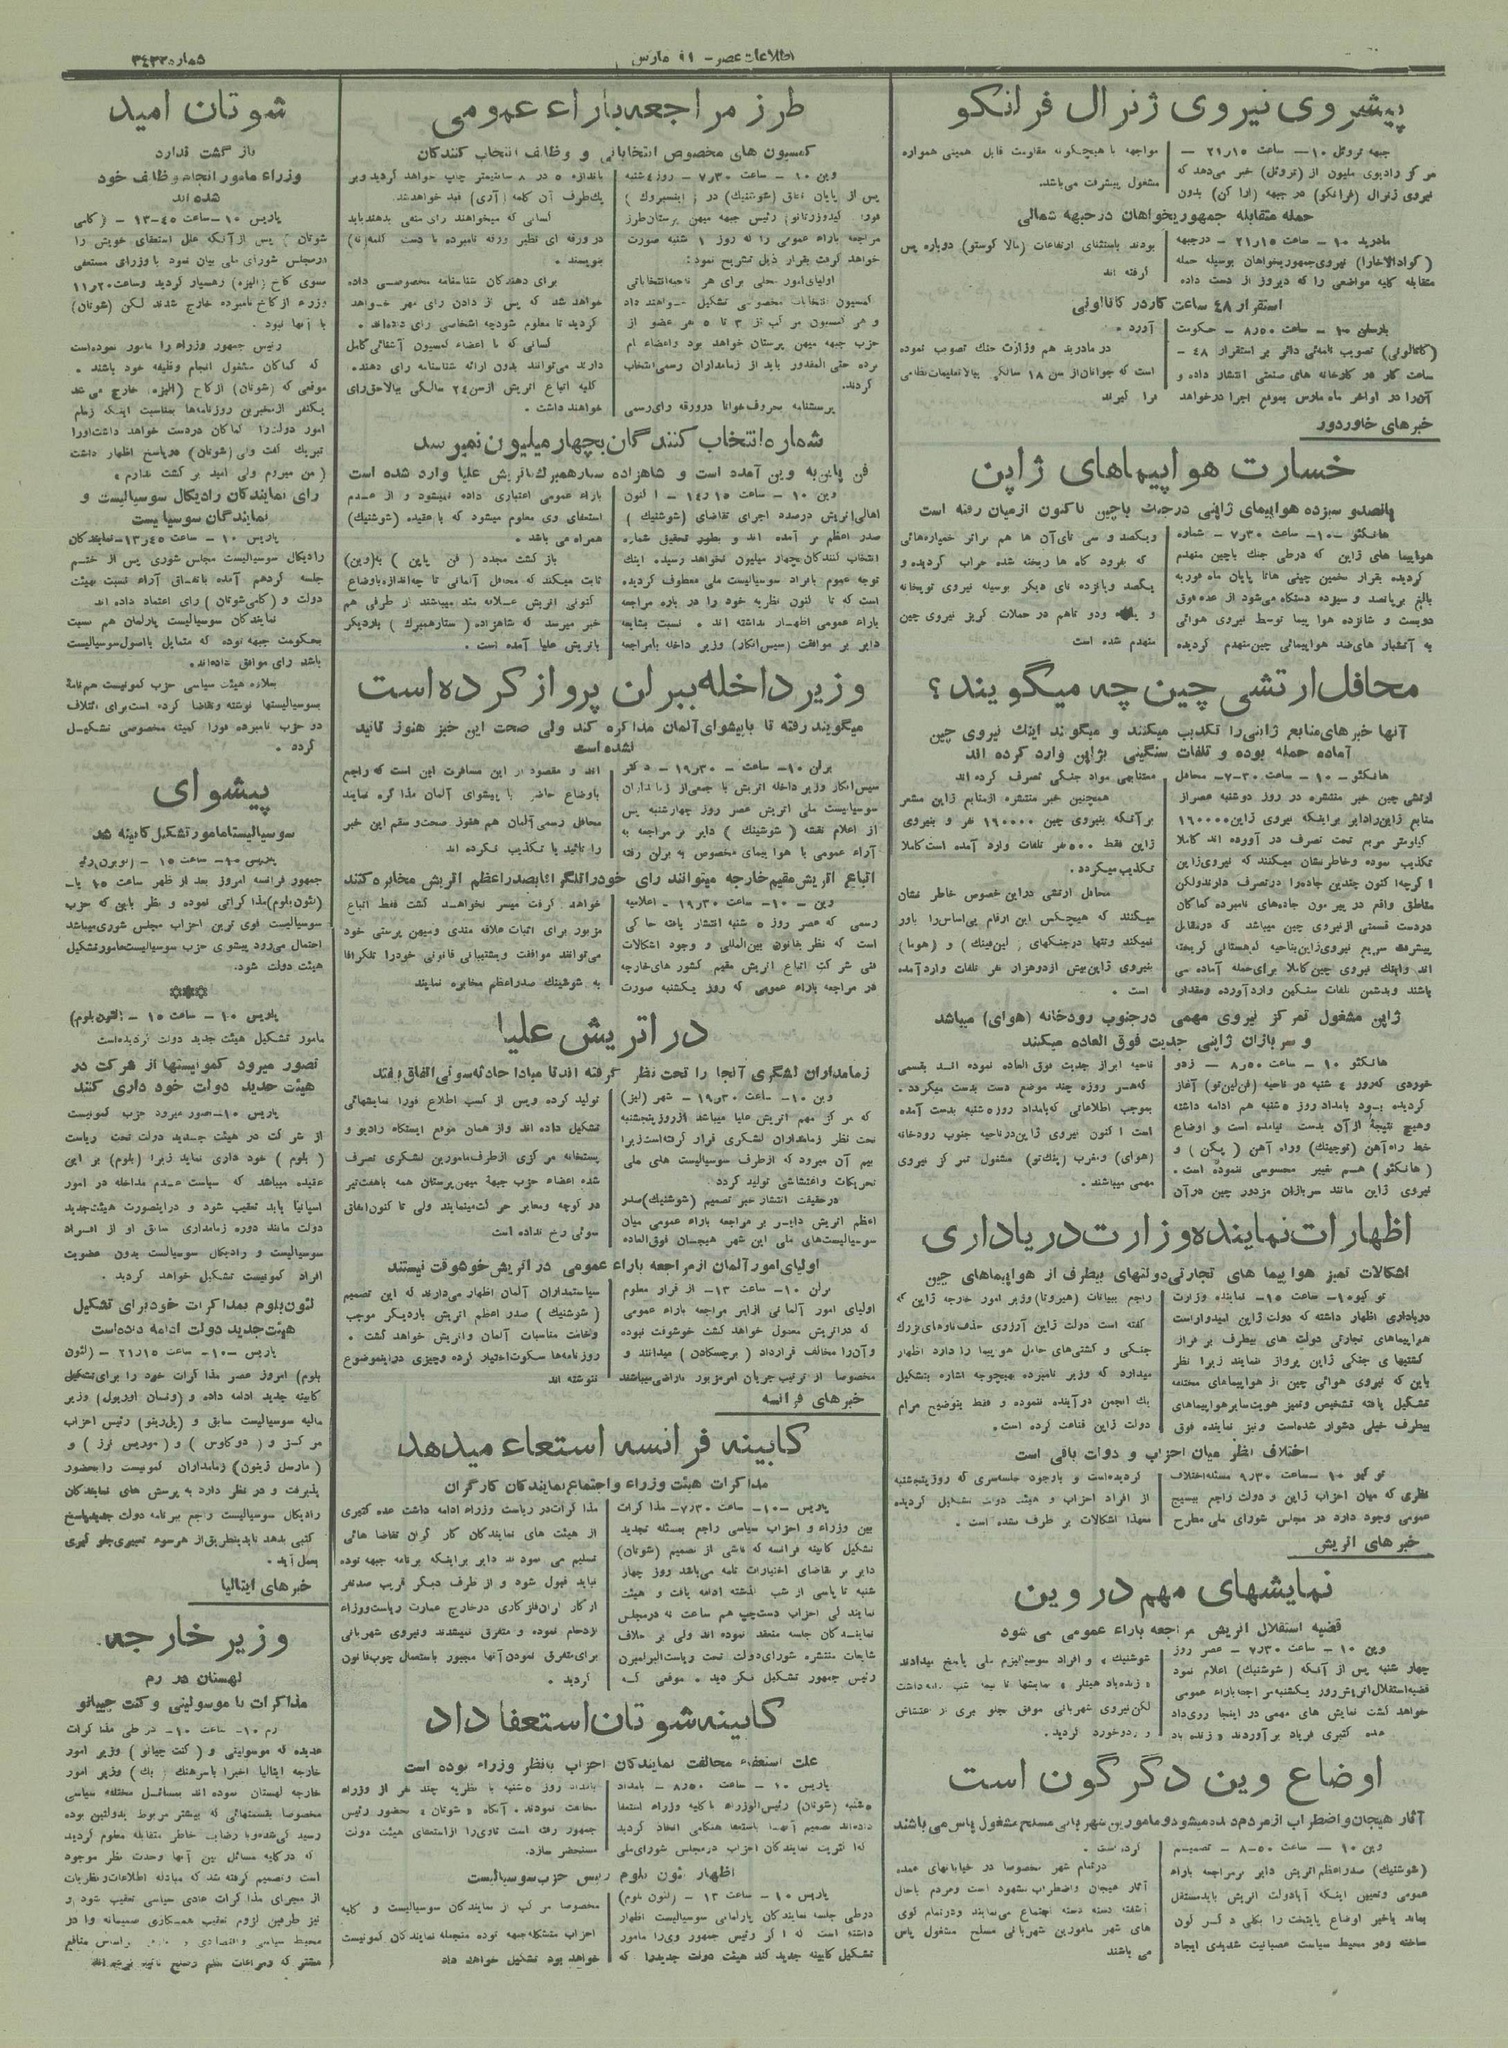 اطلاعات عصر - ۱۱ مارس
شماره ۳۴۳۳
پیشروی نیروی ژنرال فرانکو
جبهه تروئل ۱۰ — ساعت ۲۱٫۱۵ —
مرکز رادیوی ملیون از (تروئل) خبر می‌دهد که
نیروی ژنرال (فرانکو) در جبهه (ارا کن) بدون
مواجهه با هیچگونه مقاومت قابل همینی همواره
مشغول پیشرفت می‌باشد.
حمله متقابله جمهوریخواهان در جبهه شمالی
مادرید ۱۰ — ساعت ۲۱٫۱۵ - در جبهه
(کوادالاخارا) نیروی جمهوریخواهان بوسیله حمله
متقابله کلیه مواضعی را که دیروز از دست داده
بودند باستثنای ارتفاعات (مالا کوستو) دوباره پس
گرفته اند
استقرار ۴۸ ساعت کار در کاتالونی
بارسلن ۱۰ — ساعت ۸٫۵۰ - حکومت
(کاتالونی) تصویب نامه‌ئی دائر بر استقرار ۴۸ -
ساعت کار در کارخانه های صنعتی انتشار داده و
آن‌را در اواخر ماه مارس بموقع اجرا در خواهد
آورد.
در مادرید هم وزارت جنك تصویب نموده
است که جوانان از سن ۱۸ سالگی ببالا تعلیمات نظامی
فرا گیرند
خبرهای خاور دور
خسارت هواپیماهای ژاپن
پانصد و سیزده هواپیمای ژاپنی در جنك با چین تاکنون از میان رفته است
هانکئو - ۱۰ - ساعت ۷٫۳۰ - شماره
هواپیما های ژاپن که در طی جنك باچین منهدم
گردیده بقرار تخمین چینی هاتا پایان ماه فوریه
بالغ بر پانصد و سیزده دستگاه می‌شود از عده فوق
دویست و شانزده هوا پیما توسط نیروی هوائی
به آتشبار های ضد هواپیمائی چین منهدم گردیده
ویکصد و سی تای آن ها هم براثر خمپاره‌هائی
که بفرود گاه ها ریخته شده خراب گردیده و
یکصد و پانزده تای دیگر بوسیله نیروی توپخانه
و ودو تاهم در حملات گریز نیروی چین
منهدم شده است
محافل ارتشی چین چه میگویند؟
آنها خبر های منابع ژاپنی را تکذیب میکنند و میگوند اینك نیروی چین
آماده حمله بوده و تلفات سنگینی بژاپن وارد کرده اند
هانکئو - ۱۰ - ساعت ۳۰-۷- محافل
ارتشی چین خبر منتشره در روز دوشنبه عصر از
منابع ژاپن را دایر براینکه نیروی ژاپن ۱۶۰۰۰۰
کیلومتر مربع تحت تصرف در آورده اند کاملا
تکذیب نموده وخاطرنشان میکنند که نیروی ژاپن
اگرچه اکنون چندین جاده را در تصرف دارند ولکن
مناطق واقع در پیرمون جاده‌های نامبرده کماکان
در دست قسمتی از نیروی چین میباشد که در مقابل
پیشرفت سریع نیروی ژاپن بناحیه کوهستانی گریخته
اند واینك نیروی چین کاملا برای حمله آماده می
باشند و بدشمن تلفات سنگین وارد آورده و مقدار
معتنابهی مواد جنگی تصرف کرده اند
همچنین خبر منتشره از منابع ژاپن مشعر
بر آنکه بنیروی چین ۱۹۰۰۰۰ نفر و بنیروی
ژاپن فقط ۵۰۰ نفر تلفات وارد آمده است کاملا
تکذیب میکردد.
محافل ارتشی در این خصوص خاطر نشان
میکنند که هیچکس این ارقام بی‌اساس را باور
نمیکند و تنها در جنگهای (لین‌فینك) و (هوما)
بنیروی ژاپن بیش از دو هزار نفر تلفات وارد آمده
است .
ژاپن مشغول تمرکز نیروی مهمی در جنوب رودخانه (هوای) میباشد
و سر بازان ژاپنی جدیت فوق العاده میکنند
هانکئو ۱۰ — ساعت ۸٫۵۰ — زدو
خوردی که روز ۴ شنبه در ناحیه (فن‌لین‌تو) آغاز
گردیده بود بامداد روز ۵ شنبه هم ادامه داشته
وهیچ نتیجهٔ از آن بدست نیامده است و اوضاع
خط راه آهن (توجینك) وراه آهن (پکن) و
(هانکئو) هم تغییر محسوسی ننموده است.
نیروی ژاپن مانند سربازان مزدور چین در آن
ناحیه ابراز جدیت فوق العاده نموده انند بقسمی
که هر روزه چند موضع دست بدست میگردد.
بموجب اطلاعاتی که بامداد روز ۵ شنبه بدست آمده
است اکنون نیروی ژاپن در ناحیه جنوب رودخانه
(هوای) و مغرب (پنك‌تو) مشغول تمرکز نیروی
مهمی میباشند.
اظهارات نماینده وزارت دریاداری
اشکالات تمیز هواپیما های تجارتی دولتهای بیطرف از هواپیماهای چین
توکیو ۱۰- ساعت ۱۵- نماینده وزارت
دریاداری اظهار داشته که دولت ژاپن امیدوار است
هواپیماهای تجارتی دولت های بیطرف بر فراز
کشتیهای جنگی ژاپن پرواز ننمایند زیرا نظر
باین که نیروی هوائی چین از هواپیماهای مختلفه
تشکیل یافته تشخیص و تمیز هویت سایر هواپیماهای
بیطرف خیلی دشوار شده است و نیز نماینده فوق
راجم ببیانات (هیروتا) وزیر امور خارجه ژاپن که
گفته است دولت ژاپن آرزوی حذف ناوهای بزرك
جنگی و کشتی‌های حامل هواپیما را دارد اظهار
میدارد که وزیر نامبرده بهیچوجه اشاره بتشکیل
یك انجمن در آینده ننموده و فقط بتوضیح مرام
دولت ژاپن قناعت کرده است.
اختلاف نظر میان احزاب و دولت باقی است
توکیو ۱۰ — ساعت ۹٫۳۰ مسئله اختلاف
نظری که میان احزاب ژاپن و دولت راجم ببسیج
عمومی وجود دارد در مجلس شورای ملی مطرح
گردیده است و باوجود جلسه‌سری که روز پنجشنبه
از افراد احزاب و هیئت دولت تشکیل گردیده
معهذا اشکالات بر طرف نشده است .
خبر های اتریش
نمایشهای مهم در وین
قضیه استقلال اتریش مراجعه باراء عمومی می شود
وین ۱۰ — ساعت ۷٫۳۰ - عصر روز
چهار شنبه پس از آنکه (شوشنیك) اعلام نمود
قضیه استقلال اتریش روز یکشنبه مراجعه باراء عمومی
خواهد گشت نمایش های مهمی در اینجا روی‌داد
عده کثیری فریاد بر آوردند « زنده باد
شوشنیك » و افراد سوسیالیزم ملی پاسخ میدادند
« زنده باد هیتلر » نمایشها تا نیمه شب ادامه داشت
لکن نیروی شهربانی موفق جلو بری از اغتشاش
و زد وخورد گردید.
اوضاع وین دگرگون است
آثار هیجان و اضطراب از مردم دیده میشود و مامورین شهربانی مسلح مشغول پاس می‌باشند
وین ۱۰ — ساعت ۵۰-۸ - تصمیم
(شوشنیك) صدراعظم اتریش دایر بر مراجعه باراء
عمومی وتعیین اینکه آیادولت اتریش باید مستقل
بماند یاخیر اوضاع پایتخت را بکلی دگرگون
ساخته ودر محیط سیاست عصبانیت شدیدی ایجاد
کرده است.
در تمام شهر مخصوصا در خیابانهای عمده
آثار هیجان واضطراب مشهود است ومردم باحال
آشفته دسته دسته اجتماع می‌نمایند ودر تمام کوی
های شهر مامورین شهربانی مسلح مشغول پاس
می باشند
طرز مراجعه باراء عمومی
کمسیون های مخصوص انتخاباتی و وظائف انتخاب کنندگان
وین ۱۰ - ساعت ۷٫۳۰ - روز ۴ شنبه
پس از پایان نطق (شوشنیك) در (اینسبروك)
فورا کیدو زرناتو رئیس جبهه میهن پرستان طرز
مراجعه باراء عمومی را که روز ۱ شنبه صورت
خواهد گرفت بقرار ذیل تشریح نمود :
اولیای امور محلی برای هر ناحیه انتخاباتی
کمسیون انتخابات مخصوصی تشکیل خواهند داد
و هر کمسیون مرکب از ۳ تا ۵ نفر عضو از
حزب جبهه میهن پرستان خواهد بود و اعضاء نام
برده حتی المقدور باید از زمامداران رسمی انتخاب
گردند.
پرسشنامه بحروف خوانا در ورقه رای رسمی
باندازه ۵ در ۸ سانتیمتر چاپ خواهد گردید وبر
یك‌طرف آن کلمه (آری) قید خواهد شد.
کسانی که میخواهند رای منفی بدهند باید
در ورقه ای نظیر ورقه نامبرده با دست کلمه (نه)
بنویسند.
برای دهندگان شناسنامه مخصوصی داده
خواهد شد که پس از دادن رای مهر خواهد
گردید تا معلوم شود چه اشخاصی رای داده‌اند.
کسانی که با اعضاء کمسیون آشنائی کامل
دارند می‌توانند بدون ارائه شناسنامه رای دهند.
کلیه اتباع اتریش از سن ۲۴ سالگی ببالا حق رای
خواهند داشت.
شماره انتخاب کنندگان بچهار میلیون نمیرسد
فن پاپن به وین آمده است و شاهزاده ستارهمبرك باتریش علیا وارد شده است
وین ۱۰ - ساعت ۱۴٫۱۵ - اکنون
اهالی اتریش در صدد اجرای تقاضای (شوشنیك)
صدر اعظم بر آمده اند و بطور تحقیق شماره
انتخاب کنندگان بچهار میلیون نخواهد رسید. اینك
توجه عموم بافراد سوسیالیست ملی معطوف گردیده
است که تا کنون نظریه خود را در باره مراجعه
باراء عمومی اظهار نداشته اند. نسبت بشایعه
دایر بر موافقت (سیس‌انکار) وزیر داخله بامراجعه
باراء عمومی اعتباری داده نمیشود و از عدم
استعفای وی معلوم میشود که با عقیده (شوشنیك)
همراه می باشد.
باز گشت مجدد (فن پاپن) به (وین)
ثابت میکند که محافل آلمانی تا چه اندازه باوضاع
کنونی اتریش علاقه مند میباشند از طرفی هم
خبر میرسد که شاهزاده (ستارهمبرك) باردیگر
باتریش علیا آمده است.
وزیر داخله ببرلن پرواز کرده است
میگویند رفته تا با پیشوای آلمان مذاکره کند ولی صحت این خبر هنوز تائید
نشده است
برلن ۱۰- ساعت - ۱۹٫۳۰ - دکتر
سیس‌انکار وزیر داخله اتریش با جمعی از زمامداران
سوسیالیست ملی اتریش عصر روز چهارشنبه پس
از اعلام نقشه (شوشنیك) دایر بر مراجعه به
آراء عمومی با هوا پیمای مخصوص به برلن رفته
اند و مقصود از این مسافرت این است که راجع
باوضاع حاضر با پیشوای آلمان مذاکره نمایند
محافل رسمی آلمان هم هنوز صحت و سقم این خبر
را تائید یا تکذیب نکرده اند
اتباع اتریش مقیم خارجه میتوانند رای خود را تلگرافا بصدراعظم اتریش مخابره کنند
وین — ۱۰- ساعت ۱۹٫۳۰ - اعلامیه
رسمی که عصر روز ۵ شنبه انتشار یافته حاکی
است که نظر بقانون بین‌المللی و وجود اشکالات
فنی شرکت اتباع اتریش مقیم کشور های خارجه
در مراجعه باراء عمومی که روز یکشنبه صورت
خواهد گرفت میسر نخواهد گشت فقط اتباع
مزبور برای اثبات علاقه مندی ومیهن پرستی خود
می‌توانند موافقت و پشتیبانی قانونی خود را تلگرافا
به شوشنیك صدراعظم مخابره نمایند
در اتریش علیا
زمامداران لشگری آنجا را تحت نظر گرفته اند تا مبادا حادثه سوئی اتفاق بیفتد
وین ۱۰- ساعت ۱۹٫۳۰ - شهر (لینز)
که مرکز مهم اتریش علیا میباشد از روز پنجشنبه
تحت نظر زمامداران لشکری قرار گرفته است زیرا
بیم آن میرود که از طرف سوسیالیست های ملی
تحریکات واغتشاشی تولید گردد.
در حقیقت انتشار خبر تصمیم (شوشنیك) صدر
اعظم اتریش دایر بر مراجعه باراء عمومی میان
سوسیالیست‌های ملی این شهر هیجان فوق العاده
تولید کرده وپس از کسب اطلاع فورا نمایشهائی
تشکیل داده اند واز همان موقع ایستگاه رادیو و
پستخانه مرکزی از طرف مامورین لشکری تصرف
شده اعضاء حزب جبههٔ میهن پرستان همه باهفت‌تیر
در کوچه ومعابر حرکت مینمایند ولی تا کنون اتفاق
سوئی رخ نداده است
اولیای امور آلمان از مراجعه باراء عمومی در اتریش خوشوقت نیستند
برلن ۱۰ - ساعت ۱۳- از قرار معلوم
اولیای امور آلمانی از این مراجعه باراء عمومی
که در اتریش معمول خواهد گشت خوشوقت نبوده
و آن را مخالف قرارداد (برچسگادن) میدانند و
مخصوصا از ترتیب جریان امر مزبور ناراضی میباشند
سیاستمداران آلمان اظهار می‌دارند که این تصمیم
(شوشنیك) صدر اعظم اتریش باردیگر موجب
وخامت مناسبات آلمان و اتریش خواهد گشت.
روزنامه‌ها سکوت اختیار کرده وچیزی در این موضوع
ننوشته اند
خبر های فرانسه
کابینه فرانسه استعفاء میدهد
مذاکرات هیئت وزراء و اجتماع نمایندگان کارگران
پاریس — ۱۰- ساعت ۷٫۳۰- مذاکرات
بین وزراء و احزاب سیاسی راجم بمسئله تجدید
تشکیل کابینه فرانسه که ناشی از تصمیم (شوتان)
دایر بر تقاضای اختیارات تامه می‌باشد روز چهار
شنبه تا پاسی از شب گذشته ادامه یافت و هیئت
نمایندگی احزاب دست‌چپ هم ساعت نه در مجلس
نمایندگان جلسه منعقد نموده اند ولی بر خلاف
شایعات منتشره شورای دولت تحت ریاست البرلبرن
رئیس جمهور تشکیل نگردید. موقعی که
مذاکرات در ریاست وزراء ادامه داشت عده کثیری
از هیئت های نمایندگان کارگران تقاضا هائی
تسلیم می نمودند دایر براینکه برنامه جبهه توده
باید قبول شود و از طرف دیگر قریب صد نفر
از کارگران فلزکاری در خارج عمارت ریاست وزراء
ازدحام نموده و متفرق نمیشدند ونیروی شهربانی
برای متفرق نمودن آنها مجبور باستعمال چوب قانون
گردید.
کابینه شوتان استعفا داد
علت استعفاء مخالفت نمایندگان احزاب بانظر وزراء بوده است
پاریس ۱۰ — ساعت ۸٫۵۰ — بامداد
۵ شنبه (شوتان) رئیس‌الوزراء با کلیه وزراء استعفا
داده‌اند تصمیم آنها باستعفا هنگامی اتخاذ گردید
که اکثریت نمایندگان احزاب در مجلس شورای ملی
بامداد روز ۵ شنبه با نظریه چند نفر از وزراء
مخالفت نمودند. آنگاه « شوتان » بحضور رئیس
جمهور رفته است تا وی را از استعفای هیئت دولت
مستحضر سازد.
اظهار لئون بلوم رئیس حزب سوسیالیست
پاریس ۱۰ — ساعت ۱۳ — (لئون بلوم)
در طی جلسه نمایندگان پارلمانی سوسیالیست اظهار
داشته است که اگر رئیس جمهور وی را مامور
تشکیل کابینه جدید کند هیئت دولت جدید را که
مخصوصا مرکب از نمایندگان سوسیالیست و کلیه
احزاب متشکله جبهه توده منجمله نمایندگان کمونیست
خواهد بود تشکیل خواهد داد
شوتان امید
بازگشت ندارد
وزراء مامور انجام وظائف خود
شده اند
پاریس ۱۰ - ساعت ۴۵-۱۳ - (کامی
شوتان) پس از آنکه علل استعفای خویش را
در مجلس شورای ملی بیان نمود با وزرای مستعفی
بسوی کاخ (الیزه) رهسپار گردید وساعت ۱۱٫۲۰
وزراء از کاخ نامبرده خارج شدند لکن (شوتان)
با آنها نبود.
رئیس جمهور وزراء را مامور نموده است
که کماکان مشغول انجام وظیفه خود باشند.
موقعی که (شوتان) از کاخ (الیزه) خارج می شد
یکنفر از مخبرین روزنامه‌ها بمناسبت اینکه زمام
امور دولت را کماکان در دست خواهد داشت اورا
تبریك گفت ولی (شوتان) در پاسخ اظهار داشت
(من میروم ولی امید بر گشت ندارم)
رای نمایندگان رادیکال سوسیالیست و
نمایندگان سوسیالیست
پاریس ۱۰ - ساعت ۱۳٫۴۵ - نمایندگان
رادیکال سوسیالیست مجلس شوری پس از ختم
جلسه گردهم آمده باتفاق آراء نسبت بهیئت
دولت و (کامی شوتان) رای اعتماد داده اند
نمایندگان سوسیالیست پارلمان هم نسبت
بحکومت جبهه توده که متمایل باصول سوسیالیست
باشد رای موافق داده‌اند.
بعلاوه هیئت سیاسی حزب کمونیست هم نامهٔ
بسوسیالیستها نوشته وتقاضا کرده است برای ائتلاف
در حزب نامبرده فورا کمیته مخصوصی تشکیل
گردد.
پیشوای
سوسیالیستها مامور تشکیل کابینه شد
پاریس ۱۰- ساعت ۱۵ — (لوبرن) رئیس
جمهور فرانسه امروز بعد از ظهر ساعت ۱۵ با-
(لئون بلوم) مذاکراتی نموده و نظر باین که حزب
سوسیالیست قوی ترین احزاب مجلس شوری میباشد
احتمال می‌رود پیشوی حزب سوسیالیست مامور تشکیل
هیئت دولت شود.
***
پاریس ۱۰ — ساعت ۱۵ — (لئون بلوم)
مامور تشکیل هیئت جدید دولت گردیده است
تصور میرود کمونیستها از شرکت در
هیئت جدید دولت خود داری کنند
پاریس ۱۰- تصور میرود حزب کمونیست
از شرکت در هیئت جدید دولت تحت ریاست
(بلوم) خود داری نماید زیرا (بلوم) بر این
عقیده میباشد که سیاست عدم مداخله در امور
اسپانیا باید تعقیب شود و در اینصورت هیئت جدید
دولت مانند دوره زمامداری سابق او از افراد
سوسیالیست و رادیکال سوسیالست بدون عضویت
افراد کمونیست تشکیل خواهد گردید.
لئون بلوم بمذاکرات خود برای تشکیل
هیئت جدید دولت ادامه داده است
پاریس - ۱۰- ساعت ۲۱٫۱۵ — (لئون
بلوم) امروز عصر مذاکرات خود را برای تشکیل
کابینه جدید ادامه داده و (ونسان اوریول) وزیر
مالیه سوسیالیست سابق و (پل‌رینو) رئیس احزاب
مرکز و (دوکلوس) و (موریس تورز) و
(مارسل ژیتون) زمامداران کمونیست را بحضور
پذیرفت و در نظر دارد به پرسش های نمایندگان
رادیکال سوسیالیست راجم ببرنامه دولت جدید پاسخ
کتبی بدهد تا بدینطریق از هر سوء تعبیری جلوگیری
بعمل آید.
خبر های ایتالیا
وزیر خارجه
لهستان در رم
مذاکرات با موسولینی و کنت چیانو
رم ۱۰- ساعت ۱۰- در طی مذاکرات
عدیده که موسولینی و (کنت چیانو) وزیر امور
خارجه ایتالیا اخیرا باسرهنك (بك) وزیر امور
خارجه لهستان نموده اند بمسائل مختلفه سیاسی
مخصوصا بقسمتهائی که بیشتر مربوط بدولتین بوده
رسیدگی شده وبا رضایت خاطر متقابله معلوم گردید
که در کلیه مسائل بین آنها وحدت نظر موجود
است و تصمیم گرفته شد که مبادله اطلاعات و نظریات
از مجرای مذاکرات عادی سیاسی تعقیب شود و
نیز طرفین لزوم تعقیب همکاری صمیمانه را در
محیط سیاسی و اقتصادی و بر اساس منافع